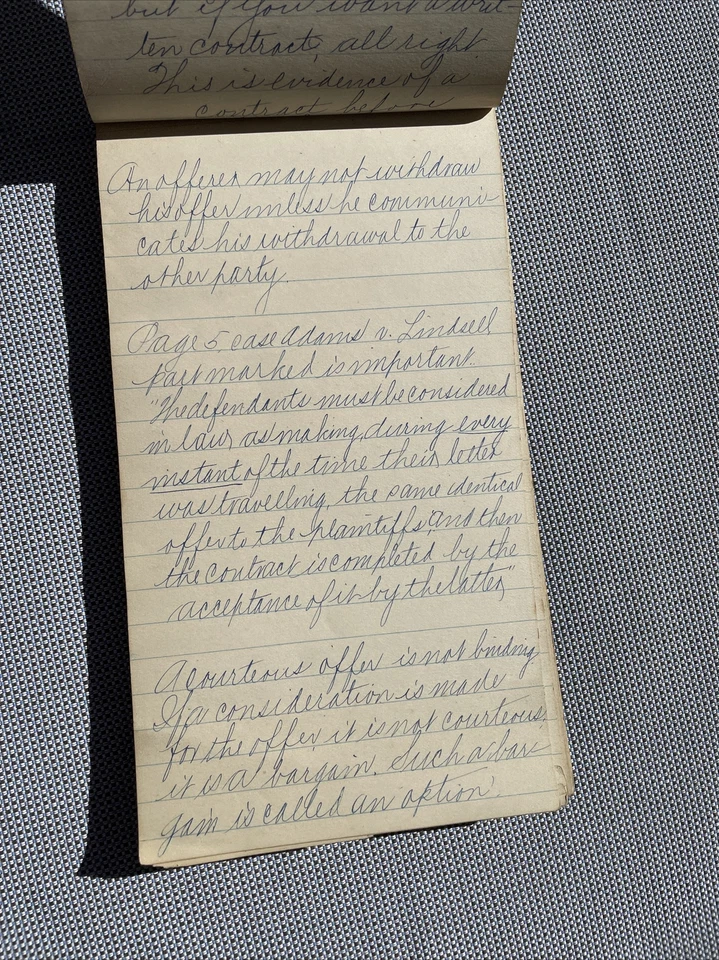 but if you want a writ-
ten contract, all right
This is evidence of a
contract before
An offerer may not withdraw
his offer unless he communi-
cates his withdrawal to the
other party.
Page 5 case Adams v. Lindsell
part marked is important.
"The defendants must be considered
in law, as making, during every
instant of the time their letter
was travelling, the same identical
offer to the plaintiffs, and then
the contract is completed by the
acceptance of it by the latter"
A courteous offer is not binding
If a consideration is made
for the offer it is not courteous,
it is a bargain. Such a bar-
gain is called an option.